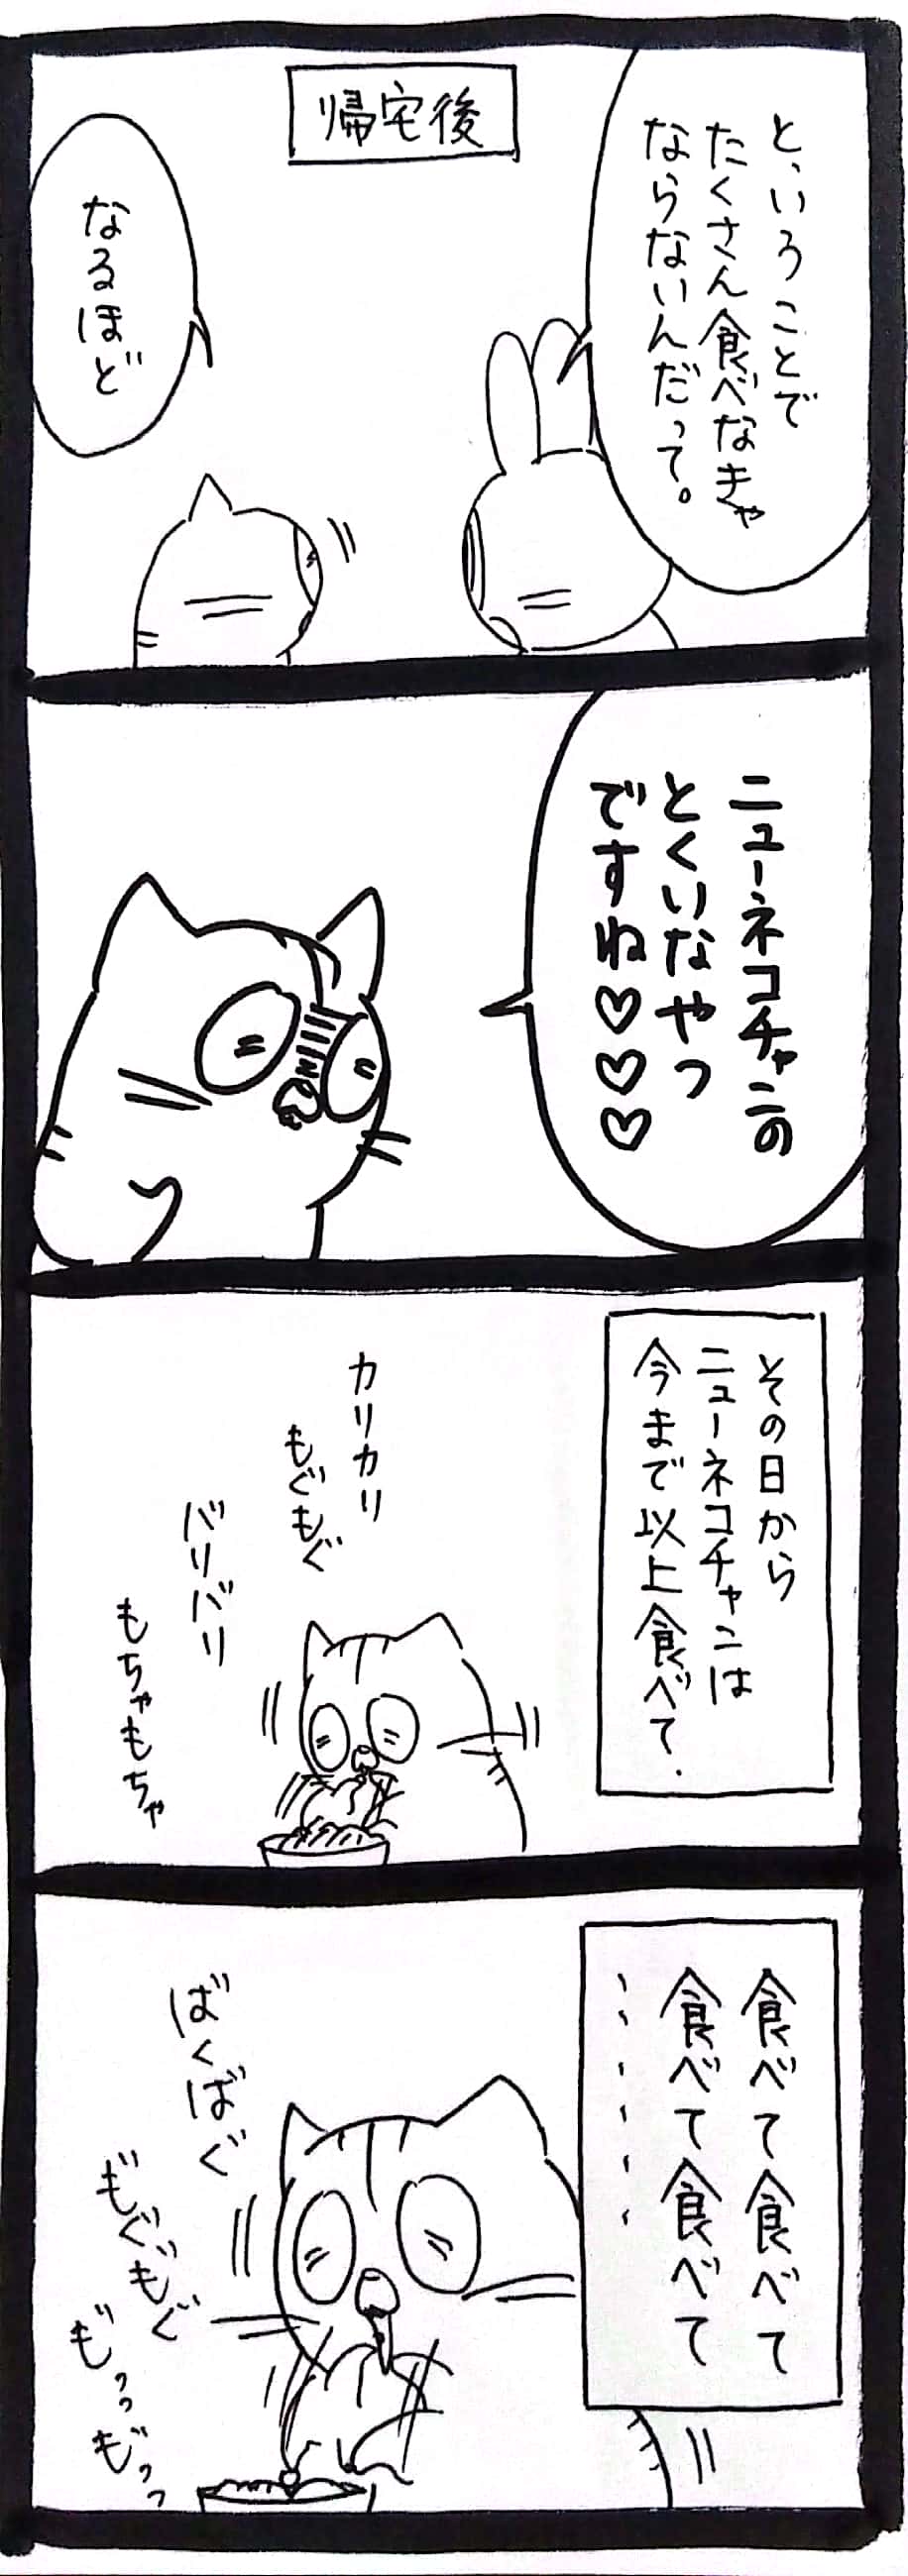 帰宅後
と、いうことで
たくさん食べなきゃ
ならないんだって。
なるほど
ニューネコチャンの
とくいなやつ
ですね♡♡♡
その日から
ニューネコチャンは
今まで以上食べて.
カリカリ
もぐもぐ
バリバリ
もちゃもちゃ
食べて食べて
食べて食べて
、、、、、、
ばくばぐ
も゛ぐも゛ぐ
も゛っっも゛っっ